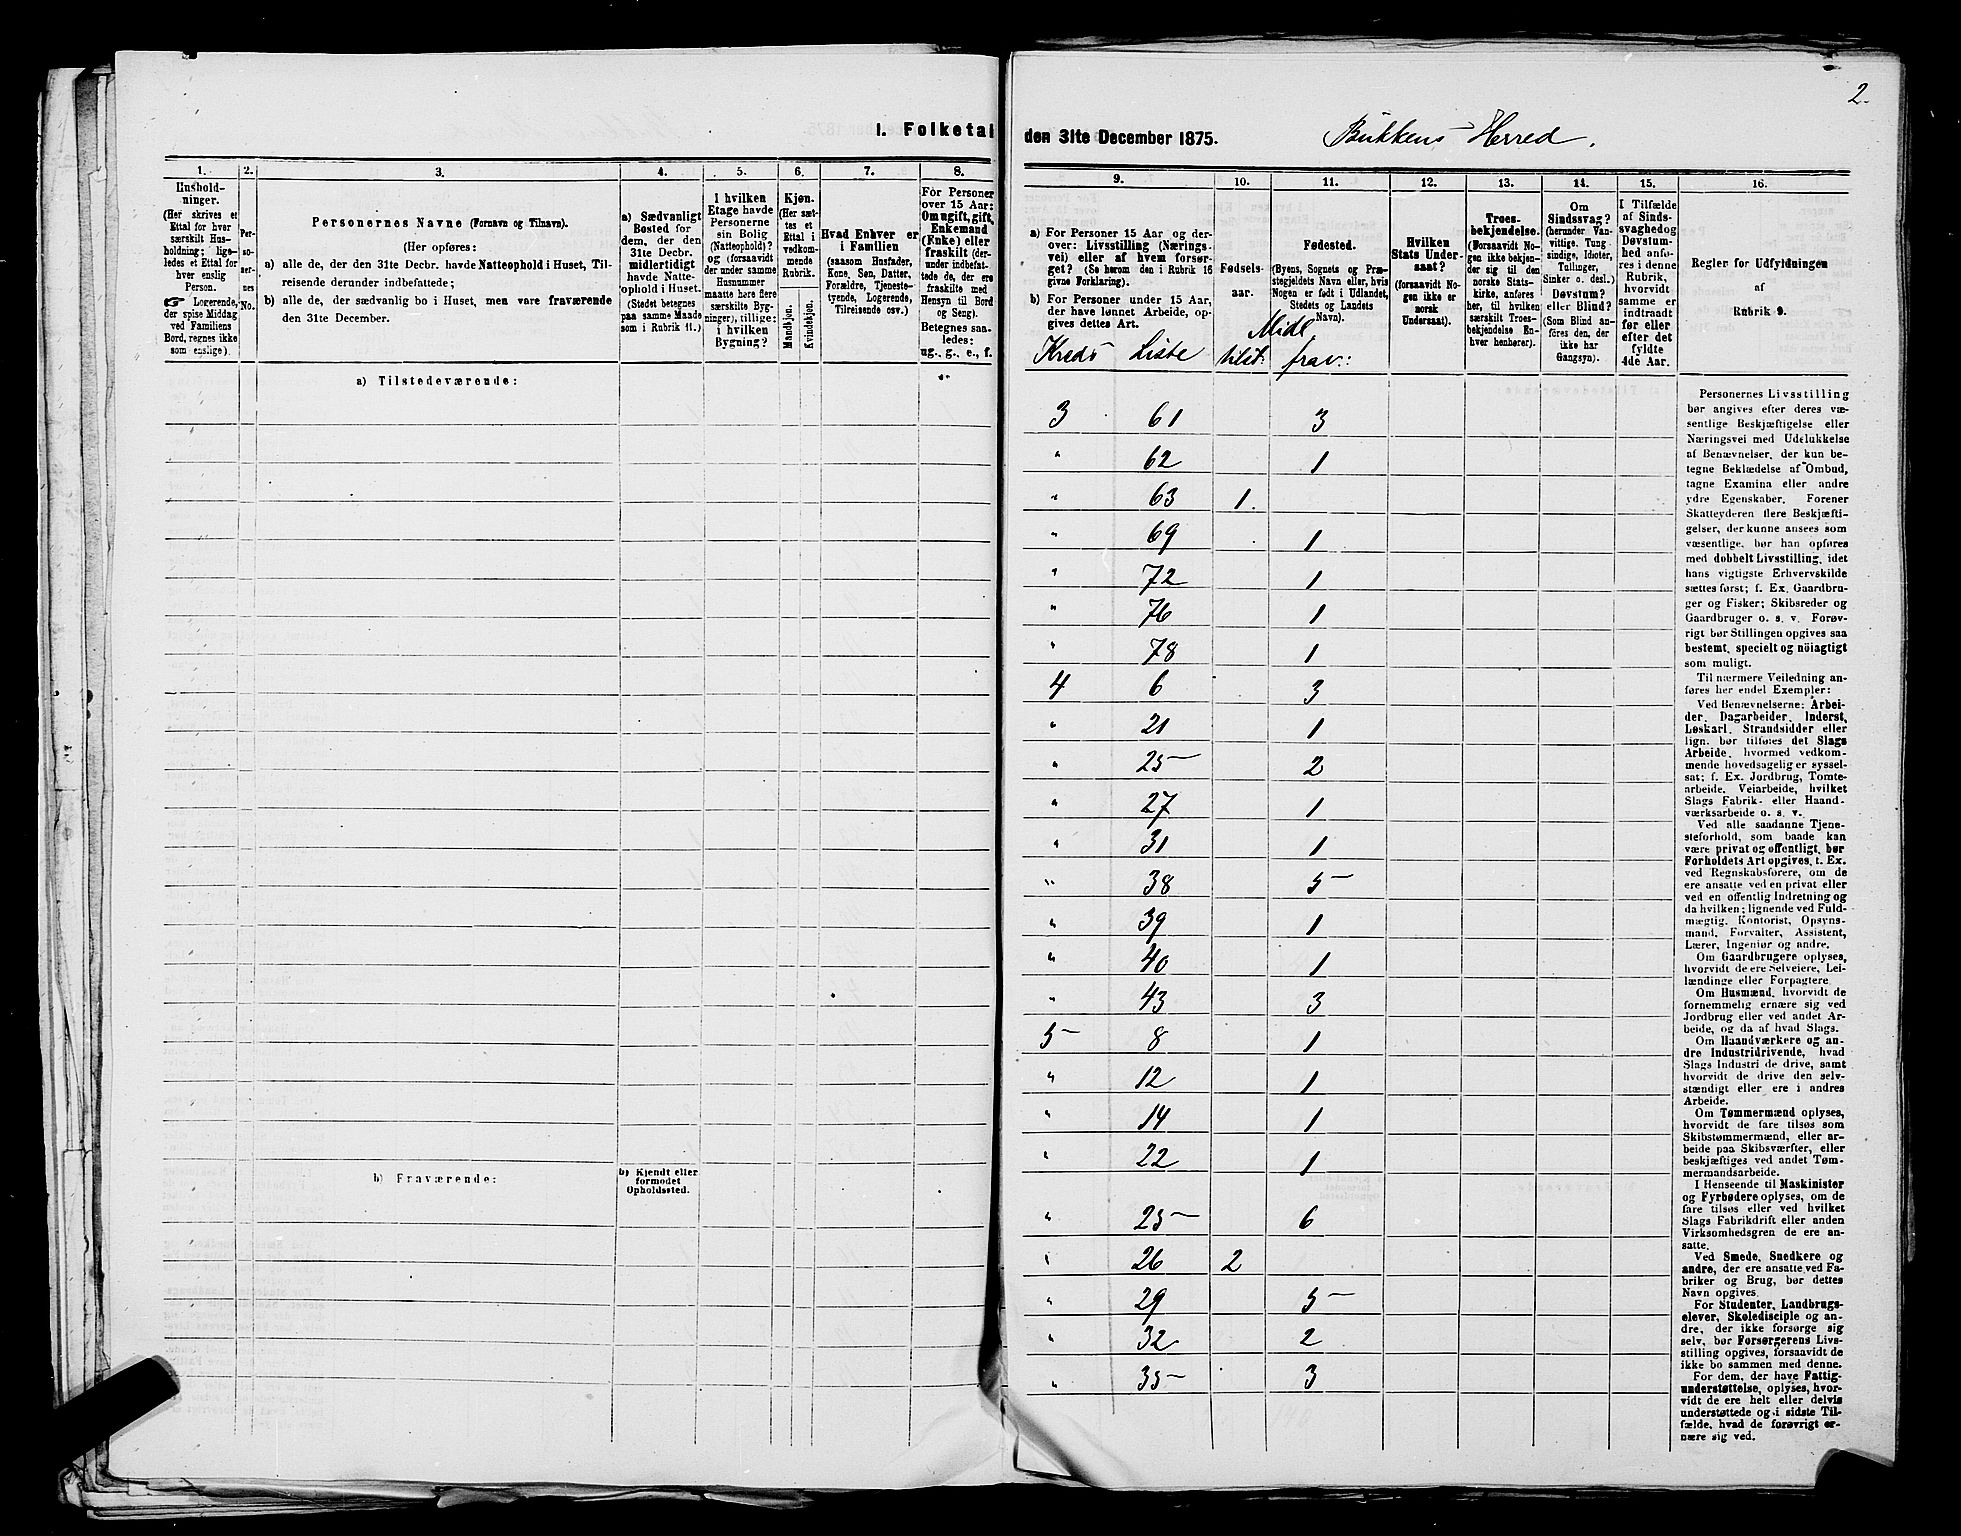 2.
I. Folketal
den 31te December 1875.
Bukkens Herred.
1.
Hushold-
ninger.
(Her skrives et
Ettal for hver
særskilt Hus-
holdning; lige-
ledes et Ettal for
hver enslig
Person.
☞ Logerende,
der spise Middag
ved Familiens
Bord, regnes ikke
som enslige).
2.
Per-
so-
ner-
nes
No.
3.
Personernes Navne (Fornavn og Tilnavn).
(Her opføres:
a) alle de, der den 31te Decbr. havde Natteophold i Huset, Til-
reisende derunder indbefattede;
b) alle de, der sædvanlig bo i Huset, men vare fraværende
den 31te December.
4.
a) Sædvanligt
Bosted for
dem, der den
31te Decbr.
midlertidigt
havde Natte-
ophold i Huset.
(Stedet betegnes
paa samme Maade
som i Rubrik 11.)
5.
I hvilken
Etage havde
Personerne
sin Bolig
(Natteophold)?
og (forsaavidt
der under samme
Husnummer
maatte høre flere
særskilte Byg-
ninger), tillige:
i hvilken
Bygning?
6.
Kjøn.
(Her sæt-
tes et
Ettal i
vedkom-
mende
Rubrik.
Mandkjøn.
Kvindekjøn.
7.
Hvad Enhver er
i Familien
(saasom Husfader,
Kone, Søn, Datter,
Forældre, Tjeneste-
tyende, Logerende,
Tilreisende osv.)
8.
For Personer
over 15 Aar:
Om ugift, gift,
Enkemand
(Enke) eller
fraskilt (der-
under indbefat-
tede de, der ere
fraskilte med
Hensyn til Bord
og Seng).
Betegnes saa-
ledes:
ug., g., e., f.
a) Tilstedeværende:
b) Fraværende:
b) Kjendt eller
formodet
Opholdssted.
9.
a) For Personer 15 Aar og der-
over: Livsstilling (Nærings-
vei) eller af hvem forsør-
get? (Se herom den i Rubrik 16
givne Forklaring).
b) For Personer under 15 Aar,
der have lønnet Arbeide, op-
gives dettes Art.
10.
Fødsels-
aar.
11.
Fødested.
(Byens, Sognets og Præ-
stegjeldets Navn eller, hvis
Nogen er født i Udlandet,
Stedets og Landets
Navn).
12.
Hvilken
Stats Under-
saat?
(forsaavidt No-
gen ikke er
norsk
Undersaat).
13.
Troes-
bekjendelse.
(Forsaavidt No-
gen ikke bekjen-
der sig til den
norske Stats-
kirke, anføres
her, til hvilken
særskilt Troes-
bekjendelse En-
hver henhører).
14.
Om
Sindssvag?
(herunder Van-
vittige, Tung-
sindige, Idioter,
Tullinger,
Sinker o. desl.)
Døvstum?
eller Blind?
(Som Blind an-
føres den, der
ikke har
Gangsyn).
15.
I Tilfælde
af Sinds-
svaghed og
Døvstum-
hed anfø-
res i denne
Rubrik,
hvorvidt
samme er
indtraadt
før eller
efter det
fyldte
4de Aar.
16.
Regler for Udfyldningen
af
Rubrik 9.
Midl
Kreds Liste tilst. frav.:
3 61 3
" 62 1
" 63 1.
" 69 1
" 72 1
" 76 1
" 78 1
4 6 3
" 21 1
" 25 2
" 27 1
" 31 1
" 38 5
" 39 1
" 40 1
" 43 3
5 8 1
" 12 1
" 14 1
" 22 1
" 25 6
" 26 2
" 29 5
" 32 2
" 35 3
Personernes Livsstilling
bør angives efter deres væ-
sentlige Beskjæftigelse eller
Næringsvei med Udelukkelse
af Benævnelser, der kun be-
tegne Beklædelse af Ombud,
tagne Examina eller andre
ydre Egenskaber. Forener
Skatteyderen flere Beskjæfti-
gelser, der kunne ansees som
væsentlige, bør han opføres
med dobbelt Livsstilling, idet
hans vigtigste Erhvervskilde
sættes først; f. Ex. Gaardbru-
ger og Fisker; Skibsreder og
Gaardbruger o. s. v. Forøv-
rigt bør Stillingen opgives saa
bestemt, specielt og nöiagtigt
som muligt.
Til nærmere Veiledning an-
føres her endel Exempler:
Ved Benævnelserne: Arbei-
der, Dagarbeider, Inderst,
Løskarl, Strandsidder eller
lign. bør tilføies det Slags
Arbeide, hvormed vedkom-
mende hovedsagelig er syssel-
sat; f. Ex. Jordbrug, Tomte-
arbeide, Veiarbeide, hvilket
Slags Fabrik- eller Haand-
værksarbeide o. s. v.
Ved alle saadanne Tjene-
steforhold, som baade kan
være privat og offentligt, bør
Forholdets Art opgives, t. Ex.
ved Regnskabsførere, om de
ere ansatte ved en privat eller
ved en offentlig Indretning og
da hvilken; lignende ved Fuld-
mægtig, Kontorist, Opsyns-
mand, Forvalter, Assistent,
Lærer, Ingeniør og andre.
Om Gaardbrugere oplyses,
hvorvidt de ere Selveiere, Lei-
lændinge eller Forpagtere.
Om Husmænd, hvorvidt de
fornemmelig ernære sig ved
Jordbrug eller ved andet Ar-
beide, og da af hvad Slags.
Om Haandværkere og an-
dre Industridrivende, hvad
Slags Industri de drive, samt
hvorvidt de drive den selv-
stændigt eller ere i andres
Arbeide.
Om Tømmermænd oplyses,
hvorvidt de fare tilsøs som
Skibstømmermænd, eller ar-
beide paa Skibsværfter, eller
beskjæftiges ved andet Tøm-
mermandsarbeide.
I Henseende til Maskinister
og Fyrbødere oplyses, om de
fare tilsøs eller ved hvilket
Slags Fabrikdrift eller anden
Virksomhedsgren de ere an-
satte.
Ved Smede, Snedkere og
andre, der ere ansatte ved Fa-
briker og Brug, bør dettes
Navn opgives.
For Studenter, Landbrugs-
elever, Skoledisciple og an-
dre, der ikke forsørge sig
selv, bør Forsørgerens Livs-
stilling opgives, forsaavidt de
ikke bo sammen med denne.
For dem, der have Fattig-
understøttelse, oplyses, hvor-
vidt de ere helt eller delvis
understøttede og i sidste Til-
fælde, hvad de forøvrigt er-
nære sig ved.